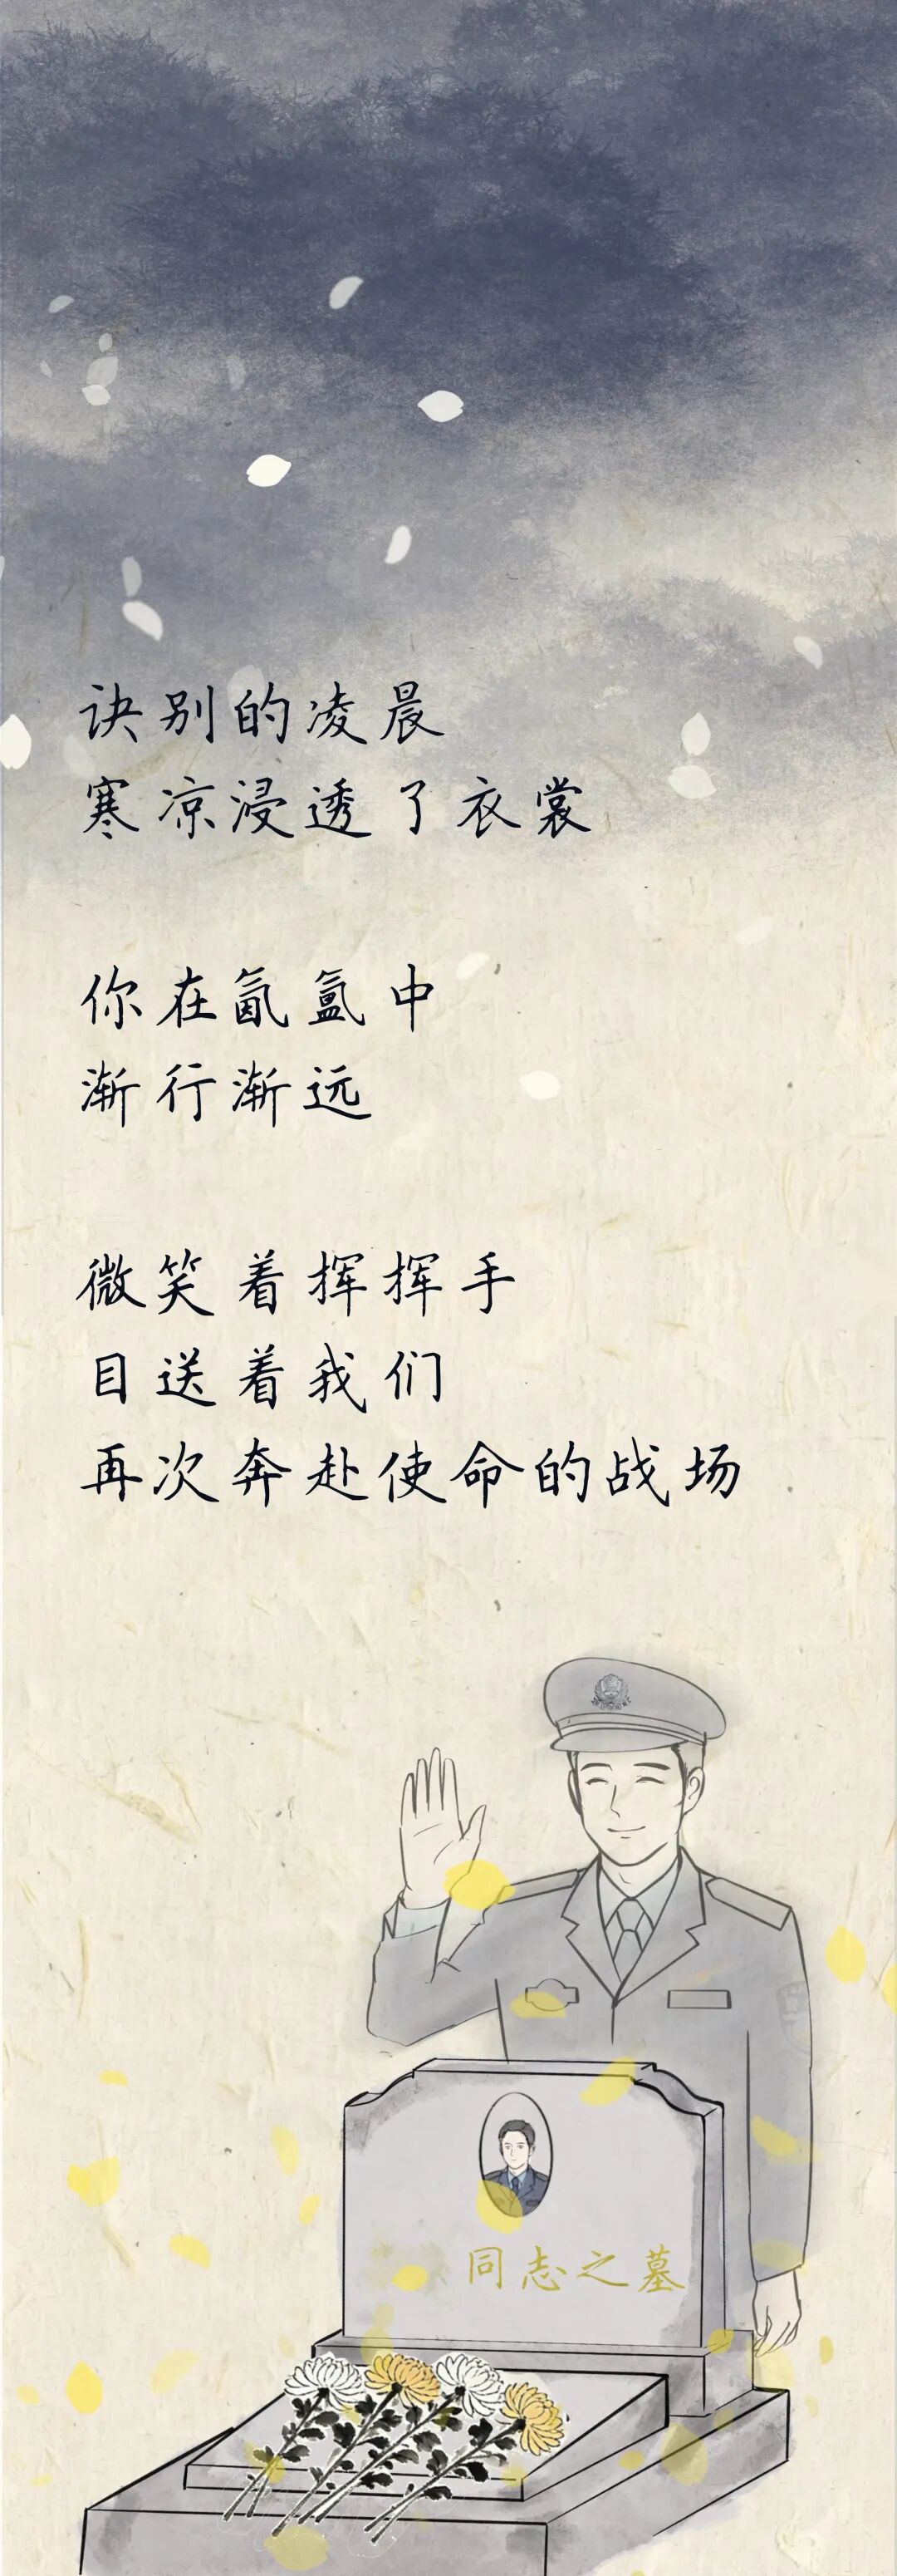 诀别的凌晨
寒凉浸透了衣裳
你在氤氲中
渐行渐远
微笑着挥挥手
目送着我们
再次奔赴使命的战场
同志之墓